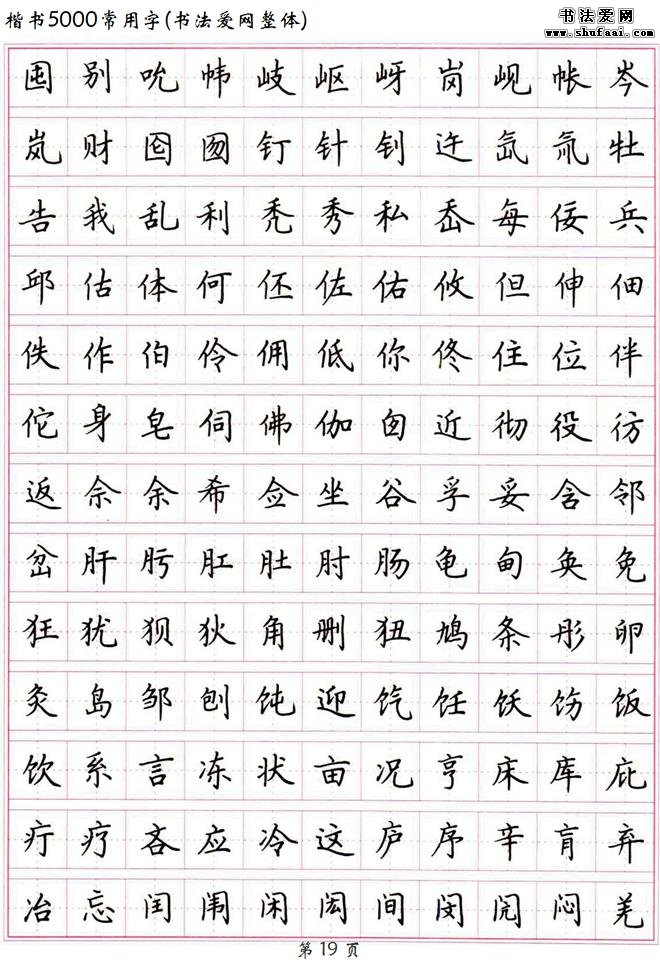 楷书5000常用字(书法爱网整体)
书法爱网
www.shufaai.com
囤别吮帏岐岖岈岗岘帐岑
岚财囵囫钉针钊迕氙氚牡
告我乱利秃秀私岙每佞兵
邱估体何伾佐佑攸但伸佃
佚作伯伶佣低你佟住位伴
佗身皂伺佛伽囱近彻役彷
返佘余希佥坐谷孚妥含邻
岔肝肟肛肚肘肠龟甸奂免
狂犹狈狄角删狃鸠条彤卵
灸岛邹刨饨迎饩饪饫饬饭
饮系言冻状亩况亨床库庇
疔疗吝应冷这庐序辛肓弃
冶忘闰闱闲闳间闵闶闷羌
第 19 页